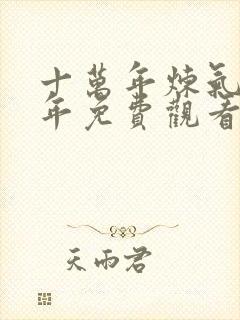 十萬年煉氣
年免費觀看
天雨君